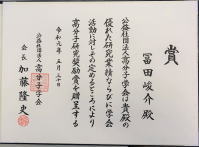 賞
冨田峻介殿
公益社団法人高分子学会は貴殿の
優れた研究業績ならびに学会
活動に対しその定めるところにより
高分子研究奨励賞を贈呈する
令和元年五月三十日
公益社団法人高分子学会
会長 加藤隆史